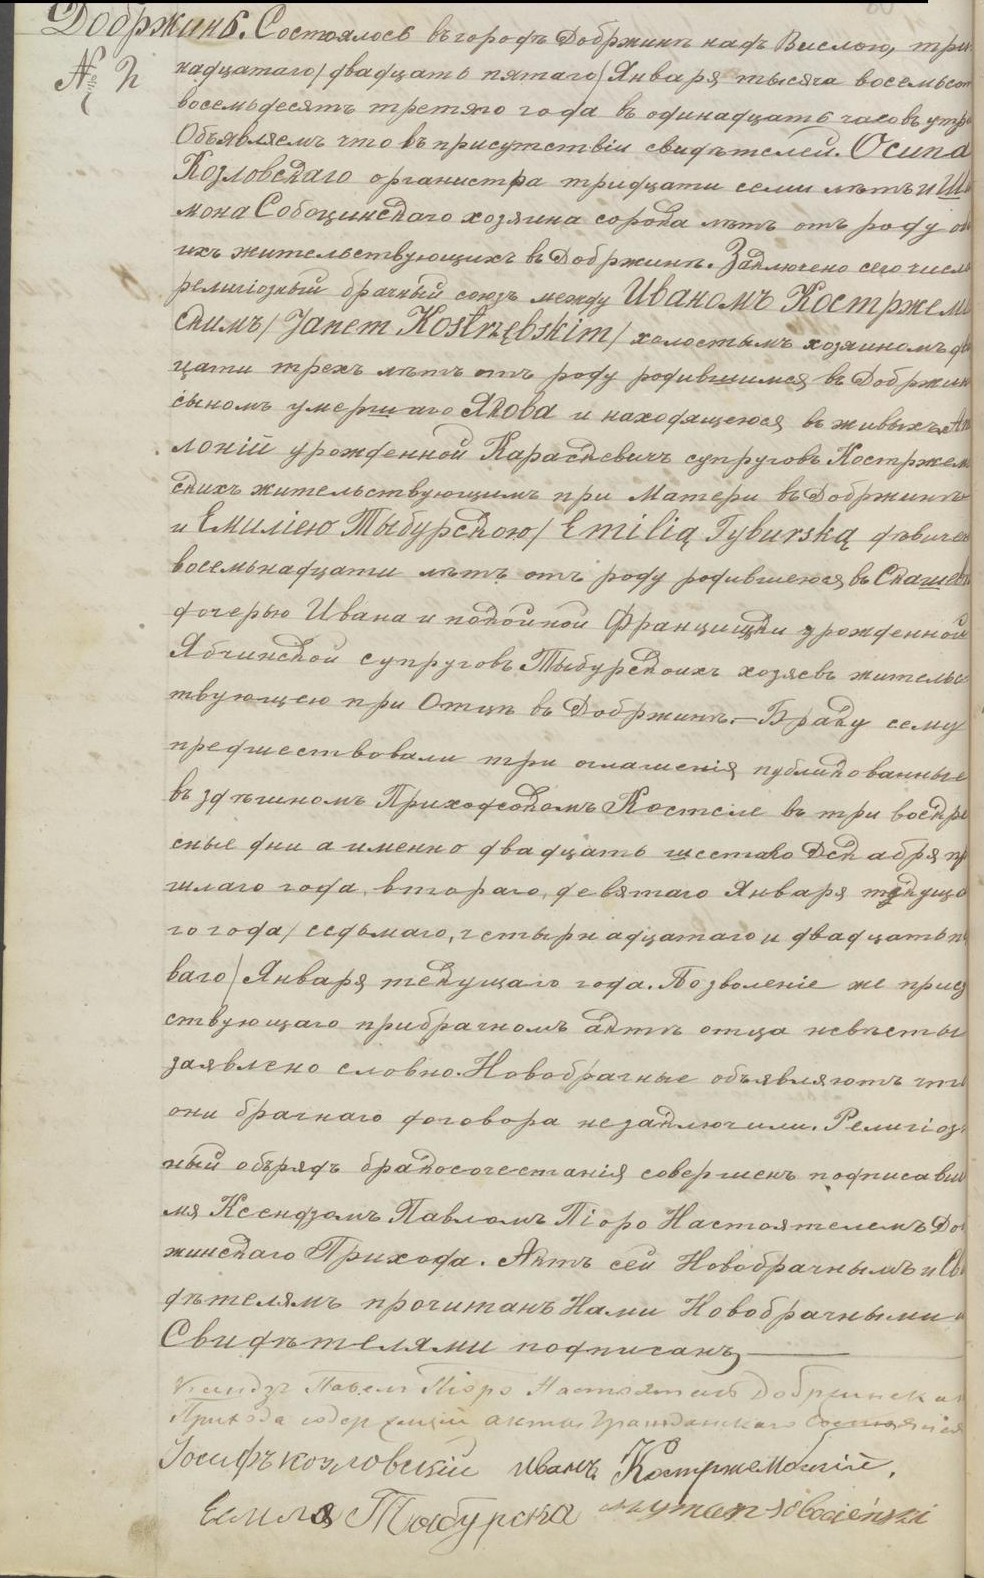 Добржинь. Состоялось въ городѣ Добржинѣ надъ Вислою, три
№ 2
надцатаго/двадцать пятаго/Января тысяча восемьсот
восемьдесятъ третяго года въ одинадцать часовъ утра
Объявляемъ что въ присутствіи свидѣтелей. Осипа
Козловскаго органистра тридцати семи лѣтъ и Ши
мона Собоцинскаго хозяина сорока лѣтъ отъ роду об
ихъ жительствующихъ въ Добржинѣ. Заключено сего числа
религіозный брачный союзъ между Иваномъ Костржемб
скимъ/Janem Kostrzębskim/холостымъ хозяиномъ два
цати трехъ лѣтъ отъ роду родившимся въ Добржин
сыномъ умершаго Якова и находящеюся въ живыхъ Ап
лоній урожденной Караскевичъ супруговъ Костржем
скихъ жительствующимъ при Матери въ Добржинѣ
и Емиліею Тыбурскою/Emilią Tyburską дѣвицею
восемьнадцати лѣтъ отъ роду родившеюся въ Скашев
дочерью Ивана и покойной Францишки урожденной
Ябчинской супруговъ Тыбурскоихъ хозяевъ жительс
твующею при Отцѣ въ Добржинѣ.— Браку сему
предшествовали три оглашенія публикованные
въ здѣшномъ Приходскомъ Костеле въ три воскре
сные дни а именно двадцать шестаго Декабря пр
шлаго года, втораго, девятаго Января текуща
го года/седьмаго, четырнадцатаго и двадцать пе
ваго/Января текущаго года. Позволеніе же присут
ствующаго прибрачномъ актѣ отца невѣсты
заявлено словно. Новобрачные объявляютъ что
они брачнаго договора незаключили. Религіоз
ный обрядъ бракосочестанія совершенъ подписавши
мя Ксендзомъ Павломъ Піоро Настоятелемъ Доб
жинскаго Прихода. Актъ сей Новобрачнымъ и Св
дѣтелямъ прочитанъ Нами Новобрачными и
Свидѣтелями подписанъ
Ксендзъ Павелъ Піоро Настоятель Добржинскаго
Прихода содержащій акты Гражданскаго Состоянія
Іосифъ Козловскій Иванъ Костржембскій.
Емиля Тыбурска Szyman Sobocieński